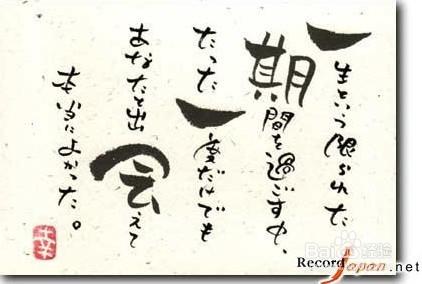 一生という限られた
期間を過ごす中、
たった一度だけでも
あなたと出会えて
本当によかった。
幸
Baidu经验
Record Japan.net